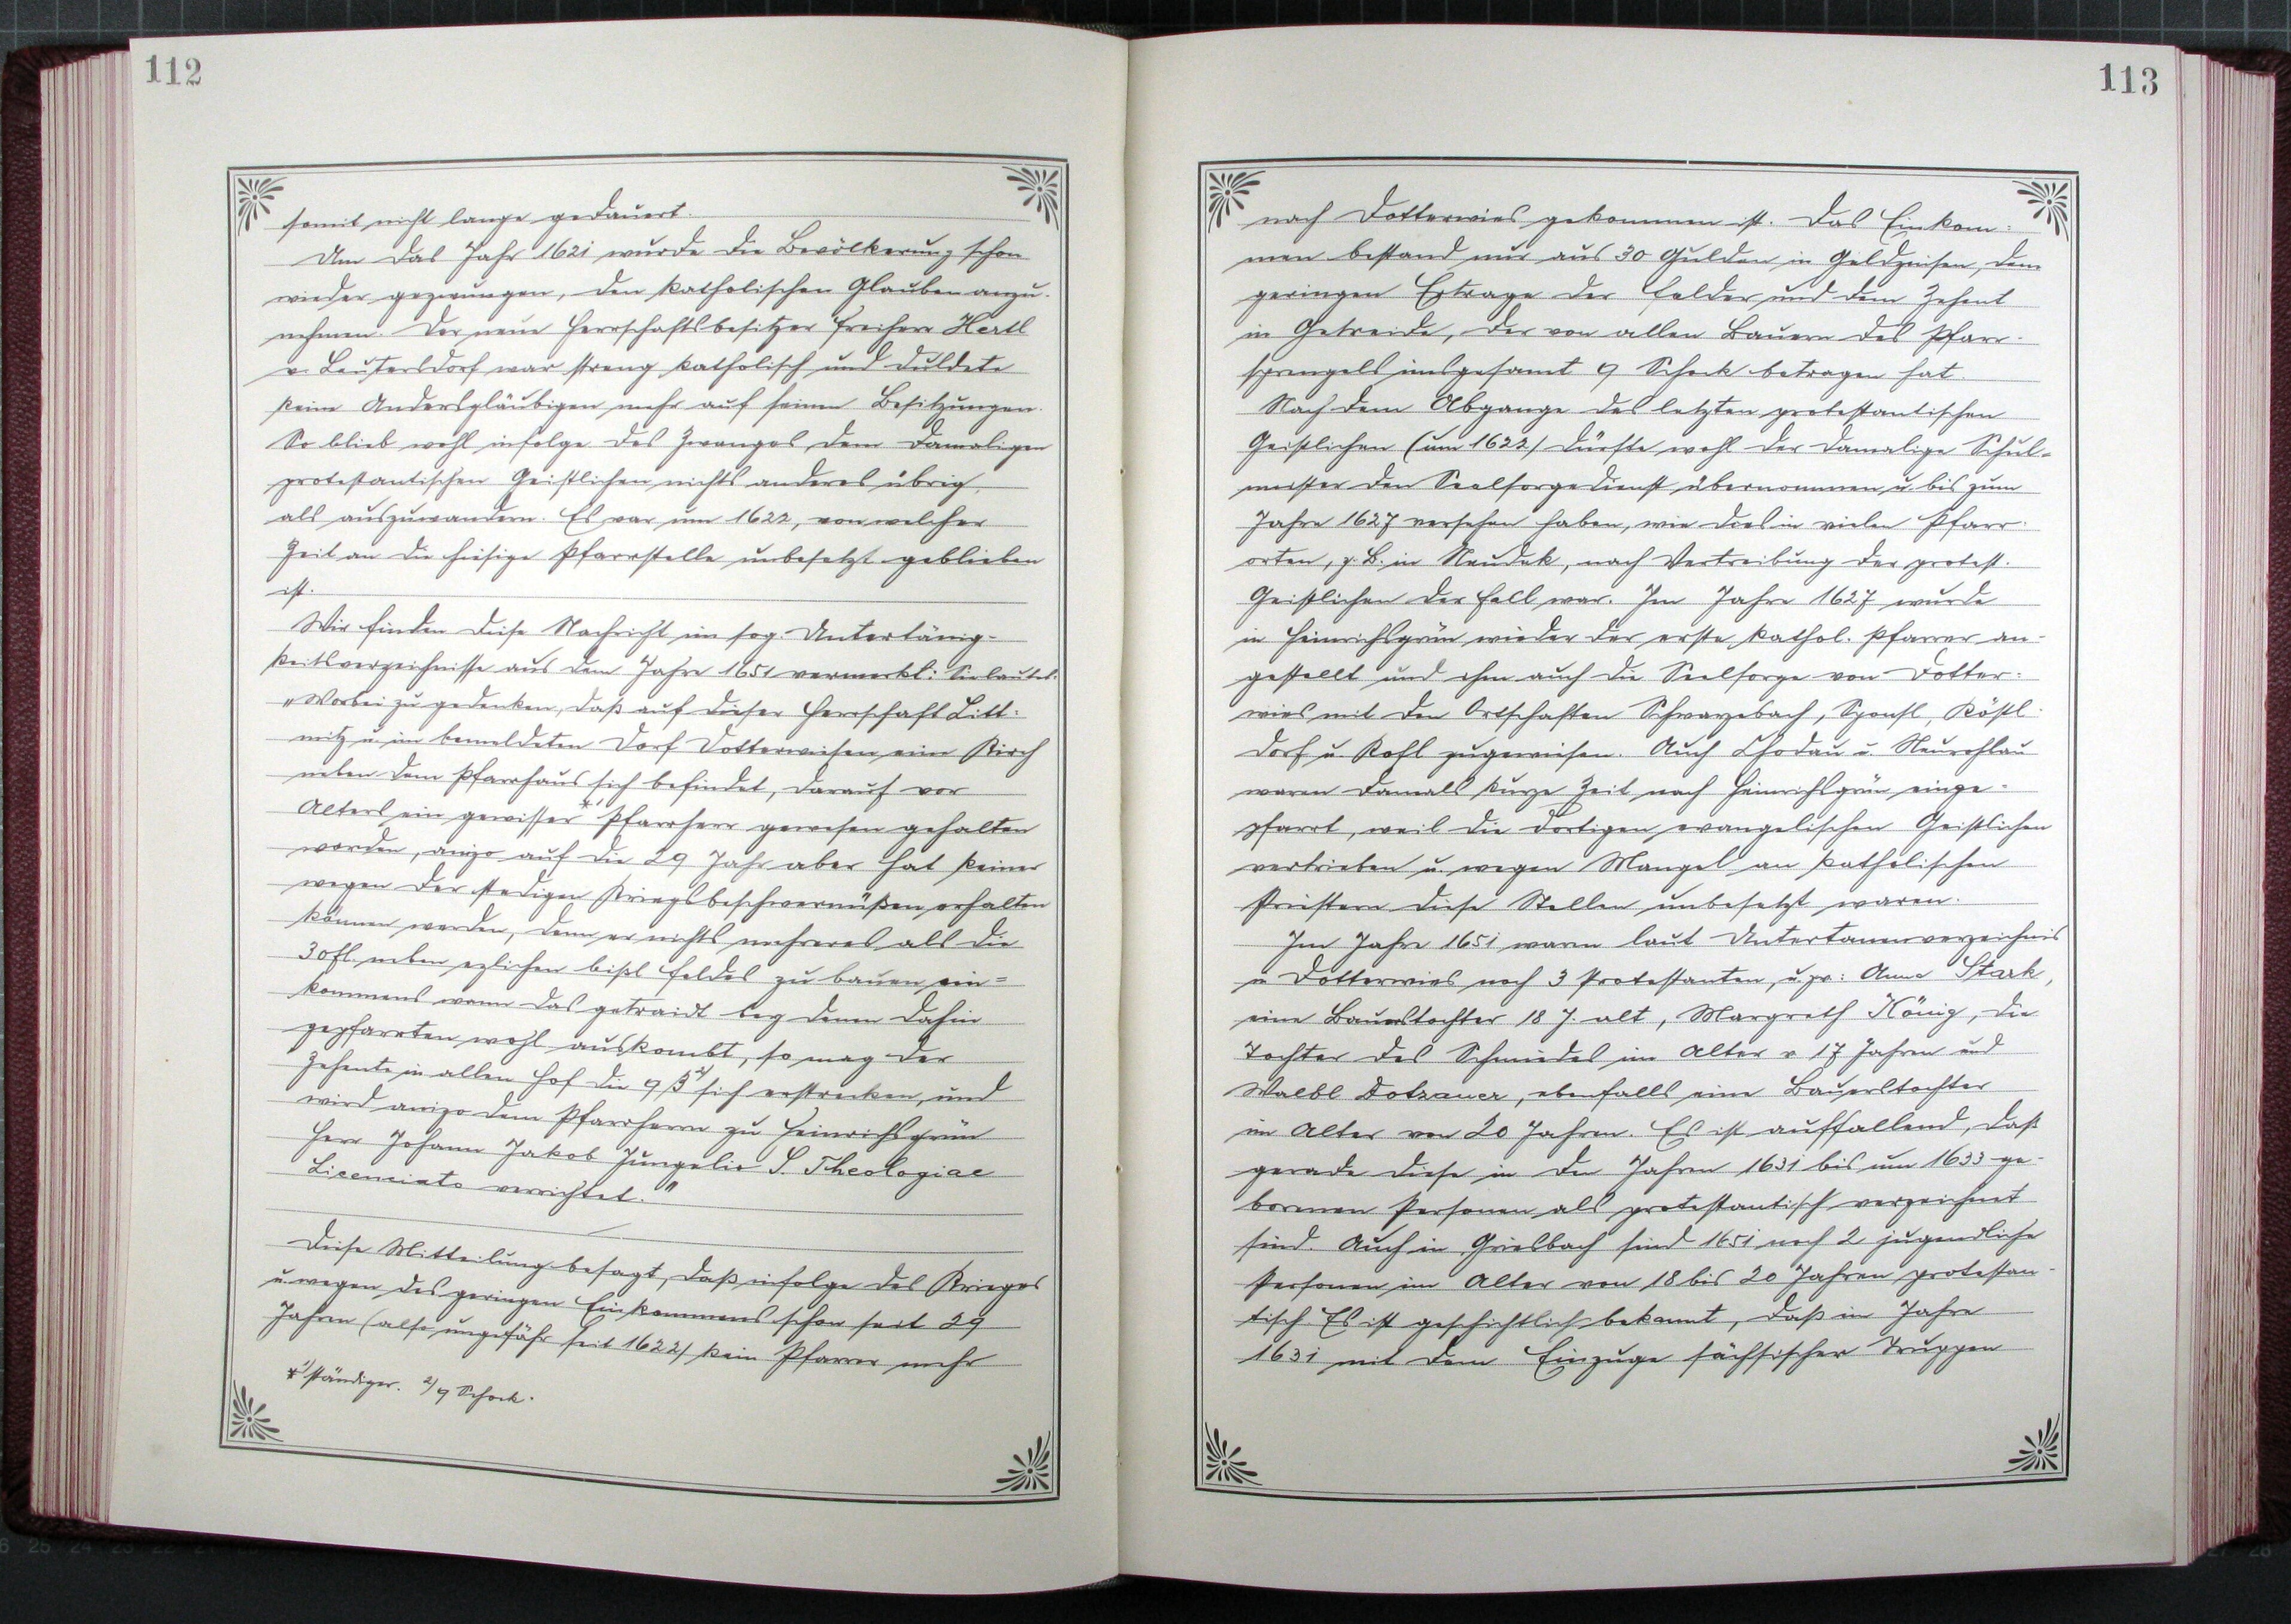 112
somit nicht lange gedauert.
Um das Jahr 1621 wurde die Bevölkerung schon
wieder gezwungen, den katholischen Glauben anzu-
nehmen. Der neue Herrschaftsbesitzer Freiherr Hertl
v. Leutersdorf war streng katholisch und duldete
keine Andersgläubigen mehr auf seinen Besitzungen.
So blieb wohl infolge des Zwanges dem damaligen
protestantischen Geistlichen nichts anderes übrig,
als auszuwandern. Es war um 1622, von welcher
Zeit an die hiesige Pfarrstelle unbesetzt geblieben
ist.
Wir finden diese Nachricht im sog. Untertänig-
keitsverzeichnisse aus dem Jahre 1651 vermerkt: Sie lautet:
"Worbei zu gedenken, daß auf dieser Herrschaft Litt-
mitz u. im bemeldeten Dorf Dotterwiesen eine Kirch
neben dem Pfarrhaus sich befindet, darauf vor
Alters ein gewisser *1) Pfarrherr gewesen gehalten
worden, anizo auf die 29 Jahr aber hat keiner
wegen der stedigen Kriegsbeschwernüßen erhalten
können werden, denn er nichts mehreres als die
30 fl. neben ezlichen bißl Feldes zu bauen ein=
kommens wann das getraidt bey denen dahin
gepfarrten wohl auskombt, so mag der
Zehente in allen Hof die 9 ß 2) sich erstrecken, und
wird anizo dem Pfarrherrn zu Heinrichsgrün
Herr Johann Jakob Jungelio S. Theologiae
Licenciato verrichtet."
Diese Mitteilung besagt, daß infolge des Krieges
u. wegen des geringen Einkommens schon seit 29
Jahren (also ungefähr seit 1622) kein Pfarrer mehr
*1) ständiger. 2) 9 Schock.
113
nach Dotterwies gekommen ist. Das Einkom-
men bestand nur aus 30 Gulden in Geldzinsen, dem
geringen Ertrage der Felder und dem Zehent
in Getreide, der von allen Bauern des Pfarr-
sprengels insgesamt 9 Schock betragen hat.
Nach dem Abgange des letzten protestantischen
Geistlichen (um 1622) dürfte wohl der damalige Schul=
meister den Seelsorgedienst übernommen u. bis zum
Jahre 1627 versehen haben, wie dies in vielen Pfarr-
orten, z. B. in Neudek, nach Vertreibung der protest.
Geistlichen der Fall war. Im Jahre 1627 wurde
in Heinrichsgrün wieder der erste kathol. Pfarrer an-
gestellt und ihm auch die Seelsorge von Dotter-
wies mit den Ortschaften Schwarzebach, Sponsl, Köstl-
dorf u. Rossl zugewiesen. Auch Chodau u. Neurohlau
waren damals kurze Zeit nach Heinrichsgrün einge-
pfarrt, weil die dortigen evangelischen Geistlichen
vertrieben u. wegen Mangel an katholischen
Priestern diese Stellen unbesetzt waren.
Im Jahre 1651 waren laut Untertanenverzeichnis
in Dotterwies noch 3 Protestanten, u. zw: Anna Stark,
eine Bauerstochter 18 J. alt, Margreth König, die
Tochter des Schmiedes im Alter v. 17 Jahren und
Walbl Dotzauer, ebenfalls eine Bauerstochter
im Alter von 20 Jahren. Es ist auffallend, daß
gerade diese in den Jahren 1631 bis um 1633 ge-
borenen Personen als protestantisch verzeichnet
sind. Auch in Griesbach sind 1651 noch 2 jugendliche
Personen im Alter von 18 bis 20 Jahren protestan-
tisch. Es ist geschichtlich bekannt, daß im Jahre
1631 mit dem Einzuge sächsischer Truppen